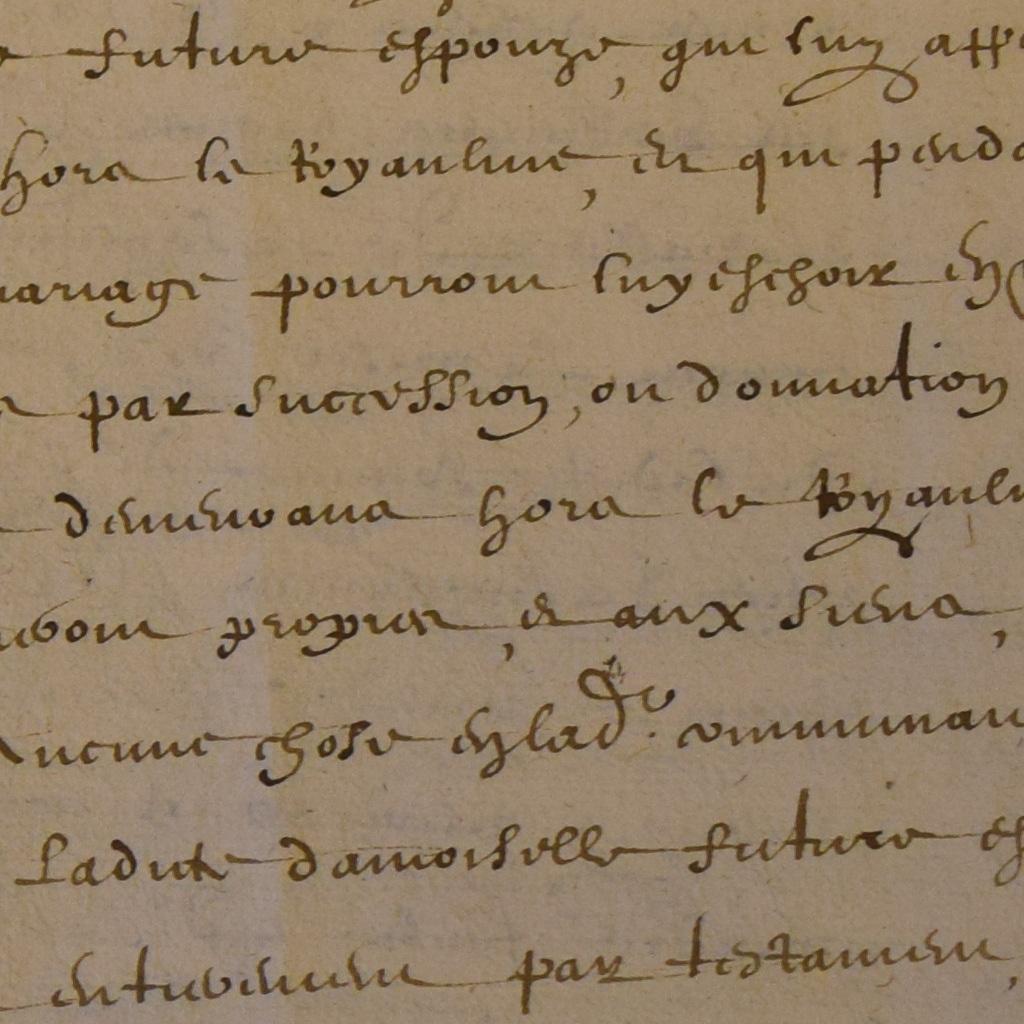 future espouze, qui luy app
hors le Royaulme, et qui penda
mariage pourront luy eschoir en
par succession, ou donnation
demeurans hors le Royaulm
propres, et aux siens,
Aucune chose en lad.e communau
Ladicte damoiselle future es
entrevenent par testament,